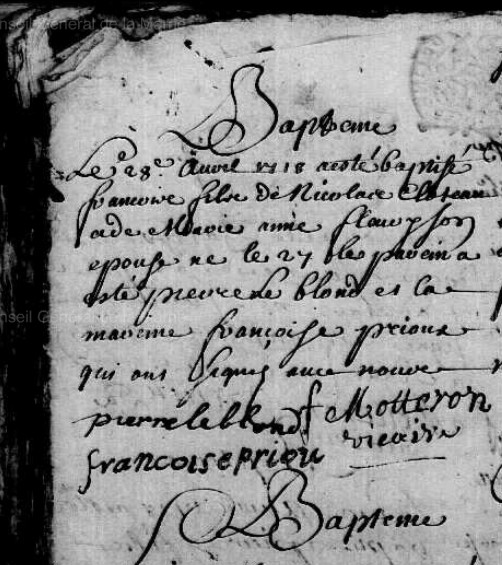 Conseil Général de la Marne
Bapteme
Le 28e Avril 1718 a esté baptisé
francoise fille de Nicolas
et de Marie anne
epouse ne le 27 le parein a
esté pierre Le blond et la
mareine francoise prioux
qui ont signés avec nous
pierre le blond f Motteron
vicaire
francoise priou
Bapteme